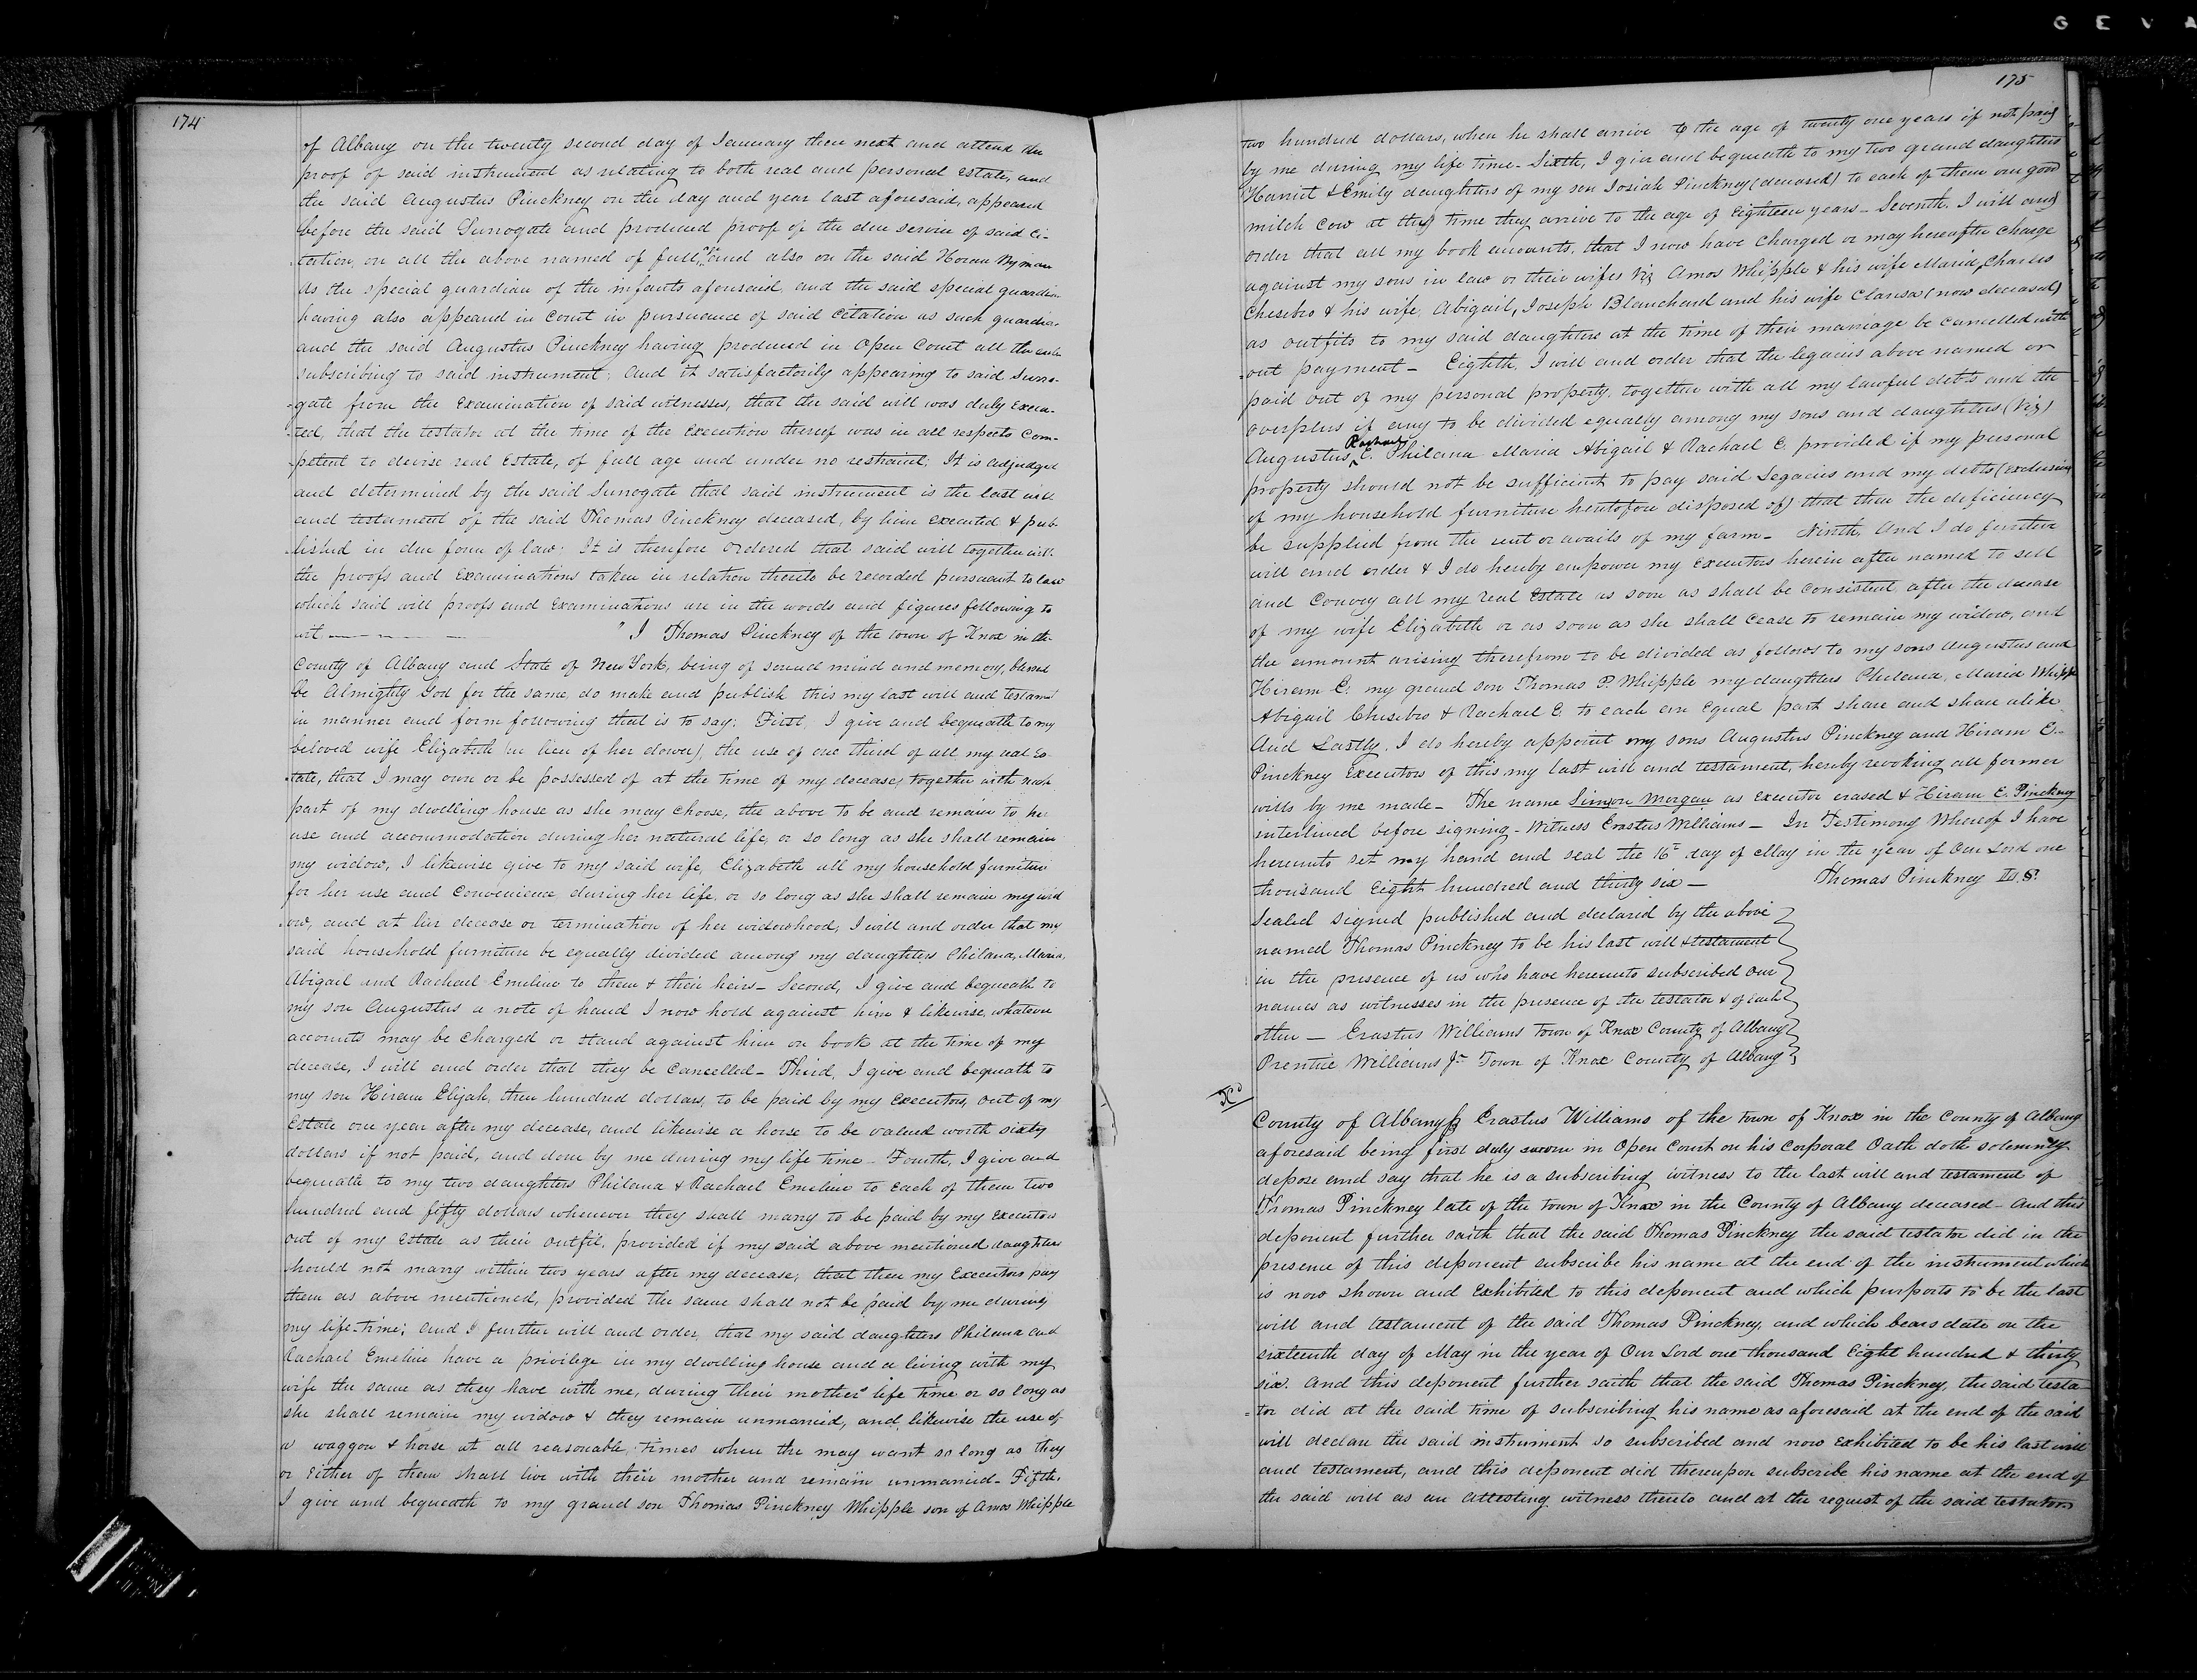 G E V A
174
of Albany on the twenty second day of January then next and attend the
proof of said instrument as relating to both real and personal Estate, and
the said Augustus Pinckney on the day and year last aforesaid, appeared
before the said Surrogate and produced proof of the due service of said Ci-
-tation, on all the above named of full age and also on the said Horace Wyman
as the special guardian of the infants aforesaid, and the said special guardian
having also appeared in Court in pursuance of said Citation as such guardian
and the said Augustus Pinckney having produced in Open Court all the
subscribing to said instrument; And it satisfactorily appearing to said Surro-
-gate from the Examination of said witnesses, that the said will was duly Execu-
-ted, that the testator at the time of the Execution thereof was in all respects Com-
-petent to devise real Estate, of full age and under no restraint; It is adjudged
and determined by the said Surrogate that said instrument is the last will
and testament of the said Thomas Pinckney deceased, by him executed & pub-
-lished in due form of law; It is therefore Ordered that said will together with
the proofs and Examinations taken in relation thereto be recorded pursuant to law
which said will proofs and Examinations are in the words and figures following to
wit — — — — " I Thomas Pinckney of the town of Knox in the
County of Albany and State of New York, being of sound mind and memory, blessed
be Almighty God for the same, do make and publish this my last will and testament
in manner and form following that is to say; First, I give and bequeath to my
beloved wife Elizabeth (in lieu of her dower), the use of one third of all my real Es-
-tate, that I may own or be possessed of at the time of my decease, together with such
part of my dwelling house as she may choose, the above to be and remain to her
use and accommodation during her natural life, or so long as she shall remain
my widow, I likewise give to my said wife, Elizabeth all my household furniture
for her use and Convenience during her life, or so long as she shall remain my wid
-ow, and at her decease or termination of her widowhood, I will and order that my
said household furniture be equally divided among my daughters Philana, Maria,
Abigail and Rachael Emeline to them & their heirs— Second, I give and bequeath to
my son Augustus a note of hand I now hold against him & likewise, whatever
accounts may be charged or stand against him on book at the time of my
decease, I will and order that they be Cancelled— Third, I give and bequeath to
my son Hiram Elijah, three hundred dollars, to be paid by my Executors, out of my
Estate one year after my decease, and likewise a horse to be valued worth sixty
dollars if not paid, and done by me during my life time — Fourth, I give and
bequeath to my two daughters Philana & Rachael Emeline to Each of them two
hundred and fifty dollars whenever they shall marry to be paid by my Executors
out of my Estate as their outfit, provided if my said above mentioned daughters
should not marry within two years after my decease; that then my Executors pay
them as above mentioned, provided the same shall not be paid by me during
my life-time; and I further will and order, that my said daughters Philana and
Rachael Emeline have a privilege in my dwelling house and a living with my
wife the same as they have with me, during their mother's life time or so long as
she shall remain my widow & they remain unmarried, and likewise the use of
a waggon & horse at all reasonable times when the may want so long as they
or Either of them shall live with their mother and remain unmarried— Fifth,
I give and bequeath to my grand son Thomas Pinckney Whipple son of Amos Whipple
175
two hundred dollars, when he shall arrive to the age of twenty one years if not paid
by me during my life time— Sixth, I give and bequeath to my two grand daughters
Harriet & Emily daughters of my son Josiah Pinckney (deceased) to each of them one good
milch Cow at the time they arrive to the age of Eighteen years— Seventh, I will and
order that all my book accounts, that I now have Charged or may hereafter Charge
against my sons in law or their wifes Viz Amos Whipple & his wife Maria, Charles
Chesebro & his wife, Abigail, Joseph Blanchard and his wife Clarisa (now deceased)
as outfits to my said daughters at the time of their marriage be cancelled with
-out payment — Eighth, I will and order that the legacies above named or
paid out of my personal property, together with all my lawful debts and the
overplus if any to be divided equally among my sons and daughters (Viz)
Augustus, Rachael E. Philana Maria Abigail & Rachael E. provided if my personal
property should not be sufficient to pay said Legacies and my debts (exclusive
of my household furniture heretofore disposed of) that then the deficiency
be supplied from the rent or avails of my farm — Ninth, And I do further
will and order & I do hereby empower my Executors herein after named to sell
and Convey all my real Estate as soon as shall be Consistent after the decease
of my wife Elizabeth or as soon as she shall cease to remain my widow, and
the amount arising therefrom to be divided as follows to my sons Augustus and
Hiram E. my grand son Thomas P. Whipple my daughters Philana, Maria Whipple
Abigail Chesebro & Rachael E. to each an Equal part share and share alike.
And Lastly, I do hereby appoint my sons Augustus Pinckney and Hiram E.
Pinckney Executors of this my last will and testament, hereby revoking all former
wills by me made — The name Simeon Morgan as Executor erased & Hiram E. Pinckney
interlined before signing — Witness Erastus Williams — In Testimony Whereof I have
hereunto set my hand and seal the 16th day of May in the year of Our Lord one
thousand Eight hundred and thirty six — Thomas Pinckney L. S.
Sealed signed published and declared by the above
named Thomas Pinckney to be his last will & testament
in the presence of us who have hereunto subscribed our
names as witnesses in the presence of the testator & of each
other — Erastus Williams Town of Knox County of Albany
Prentice Williams Jr Town of Knox County of Albany
County of Albany ss Erastus Williams of the town of Knox in the County of Albany
aforesaid being first duly sworn in Open Court on his Corporal Oath doth solemnly
depose and say that he is a subscribing witness to the last will and testament of
Thomas Pinckney late of the town of Knox in the County of Albany deceased— And this
deponent further saith that the said Thomas Pinckney the said testator did in the
presence of this deponent subscribe his name at the end of the instrument which
is now shown and Exhibited to this deponent and which purports to be the last
will and testament of the said Thomas Pinckney, and which bears date on the
sixteenth day of May in the year of Our Lord one thousand Eight hundred & thirty
six. And this deponent further saith that the said Thomas Pinckney, the said testa-
-tor did at the said time of subscribing his name as aforesaid at the end of the said
will declare the said instrument so subscribed and now Exhibited to be his last will
and testament, and this deponent did thereupon subscribe his name at the end of
the said will as an attesting witness thereto and at the request of the said testator